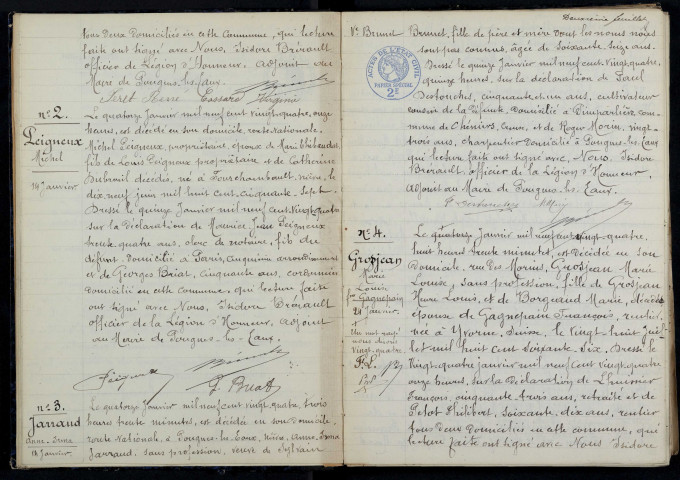 tous deux domiciliés en cette Commune, qui lecture
faite ont signé avec Nous, Isidore Brérault
officier de Légion d'Honneur, Adjoint au
Maire de Pougues-les-Eaux.
n° 2.
Peigneux
Michel
14 Janvier
Le quatorze Janvier mil neuf cent vingt-quatre, onze
heures, est décédé en son domicile, route Nationale,
Michel Peigneux, propriétaire, époux de Marie Thibaudat,
fils de Louis Peigneux propriétaire et de Catherine
Dubreuil décédés, né à Fourchambault, Nièvre, le
dix neuf juin mil huit cent cinquante-sept.
Dressé le quinze Janvier mil neuf cent vingt quatre
sur la déclaration de Maurice Jean Peigneux
trente quatre ans, clerc de notaire, fils du
défunt, domicilié à Paris, cinquième arrondissement
et de Georges Briat, cinquante ans, cordonnier
domicilié en cette commune, qui lecture faite
ont signé avec Nous, Isidore Brérault
officier de la Légion d'Honneur, adjoint
au Maire de Pougues-les-Eaux.
Peigneux
G. Briat
n° 3.
Jarraud
Anne-Irma
14 Janvier.
Le quatorze Janvier mil neuf cent vingt-quatre trois
heures trente minutes, est décédée en son domicile,
route Nationale, à Pougues-les-Eaux, Nièvre, Anne-Irma
Jarraud, sans profession, veuve de Sylvain
Deuxième feuillet
Vve Brunet
Brunet, fille de père et mère dont les noms nous
sont pas connus, âgée de soixante-seize ans.
Dressé le quinze Janvier mil neuf cent vingt-quatre,
quinze heures, sur la déclaration de
cinquante et un ans, cultivateur
cousin de la défunte, domicilié à
commune de Chéniers, Creuse, et de Roger Morin, vingt-
trois ans, charpentier domicilié à Pougues-les-Eaux
qui lecture faite ont signé avec Nous, Isidore
Brérault, officier de la Légion d'Honneur,
adjoint au Maire de Pougues-les-Eaux.
ACTES DE L'ÉTAT CIVIL
PAPIER SPÉCIAL
2F
n° 4.
Grosjean
Marie
Louise
fe Gagnepain
24 Janvier
Un mot rayé
nous disons
vingt-quatre
Le quatorze Janvier mil neuf cent vingt-quatre,
huit heures trente minutes, est décédée en son
domicile, rue des Morins, Grosjean Marie
Louise, sans profession, fille de Grosjean
Louis, et de Borgeaud Marie, décédés
épouse de Gagnepain François, rentier,
née à Yvorne, Suisse, le vingt-huit juil-
let mil huit cent soixante-six. Dressé le
vingt-quatre janvier mil neuf cent vingt-quatre
onze heures, sur la déclaration de Lhuissier
François, cinquante trois ans, retraité et de
Petot Philibert, soixante-dix ans, rentier
tous deux domiciliés en cette commune, qui
lecture faite ont signé avec Nous Isidore